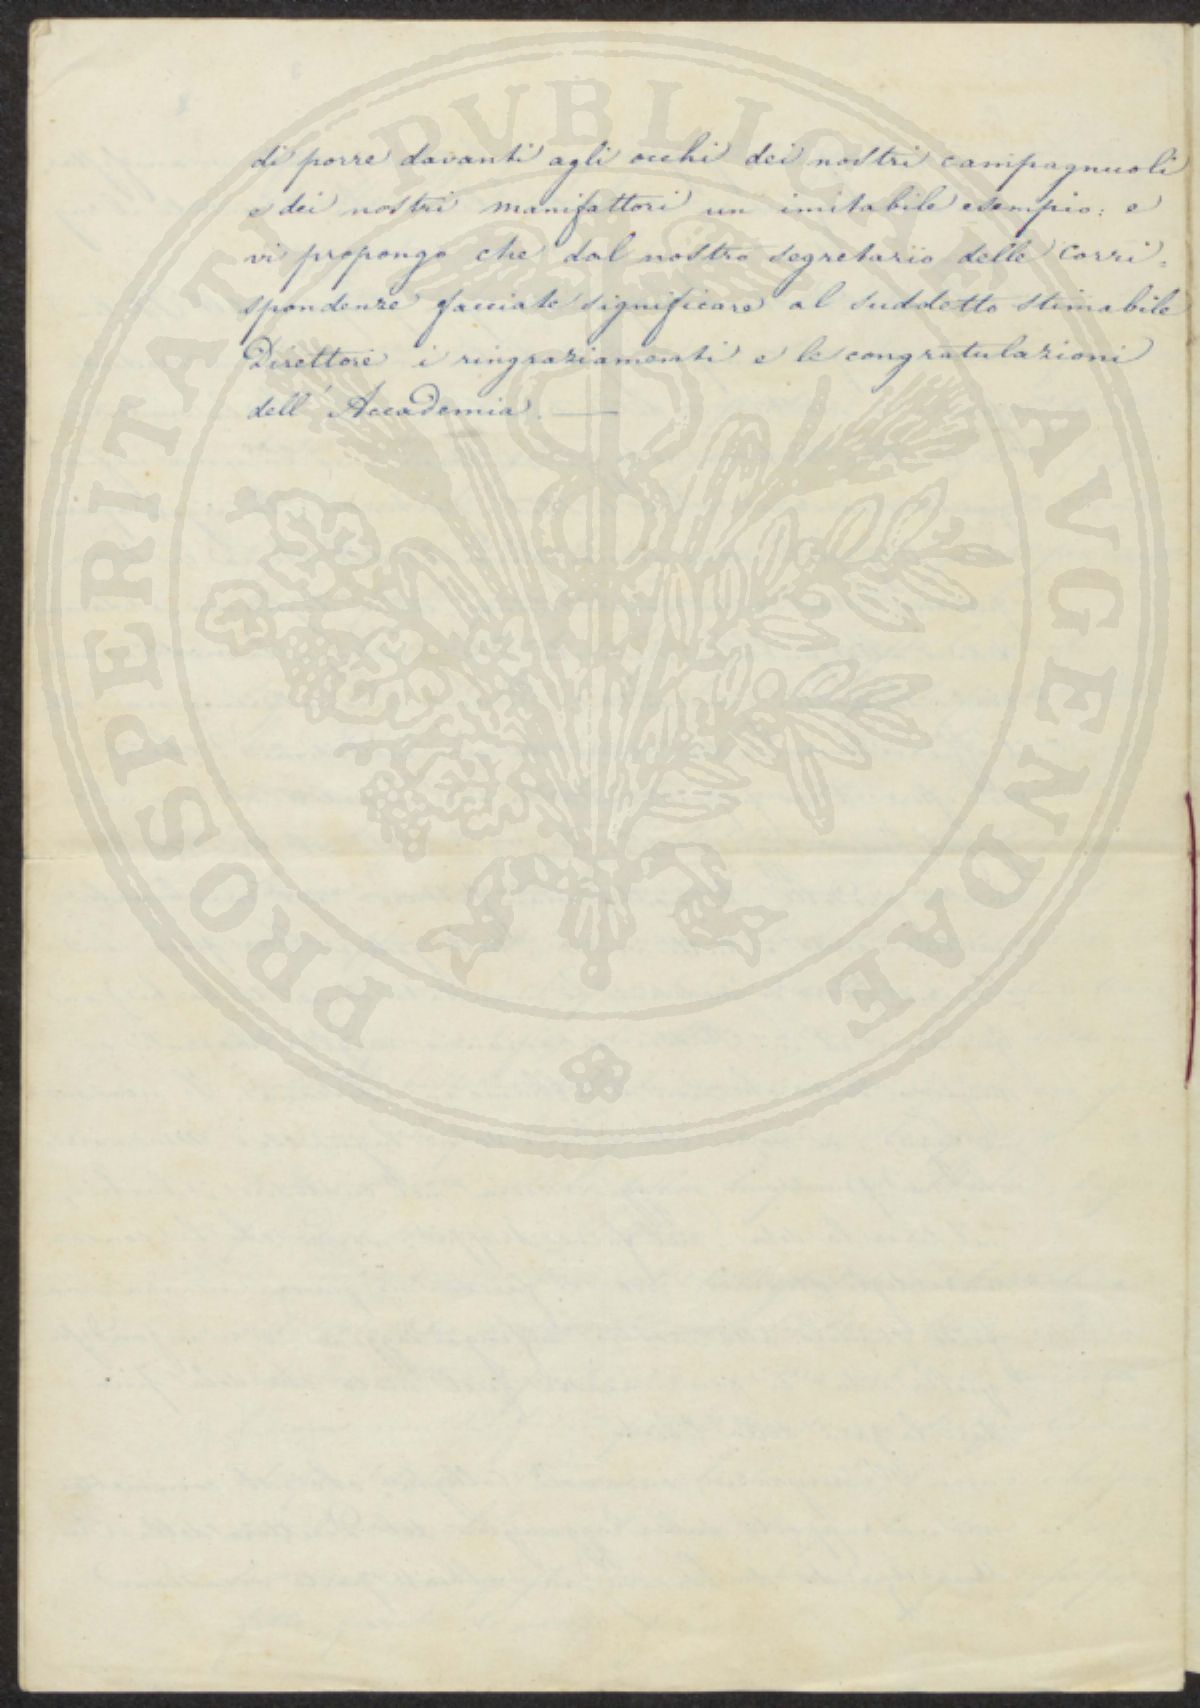 di porre davanti agli occhi dei nostri campagnuoli
e dei nostri manifattori un imitabile esempio: e
vi propongo che dal nostro segretario delle Corri=
spondenze facciate significare al suddetto stimabile
Direttore i ringraziamenti e le congratulazioni
dell' Accademia. —
PROSPERITATI PVBLICAE AVGENDAE